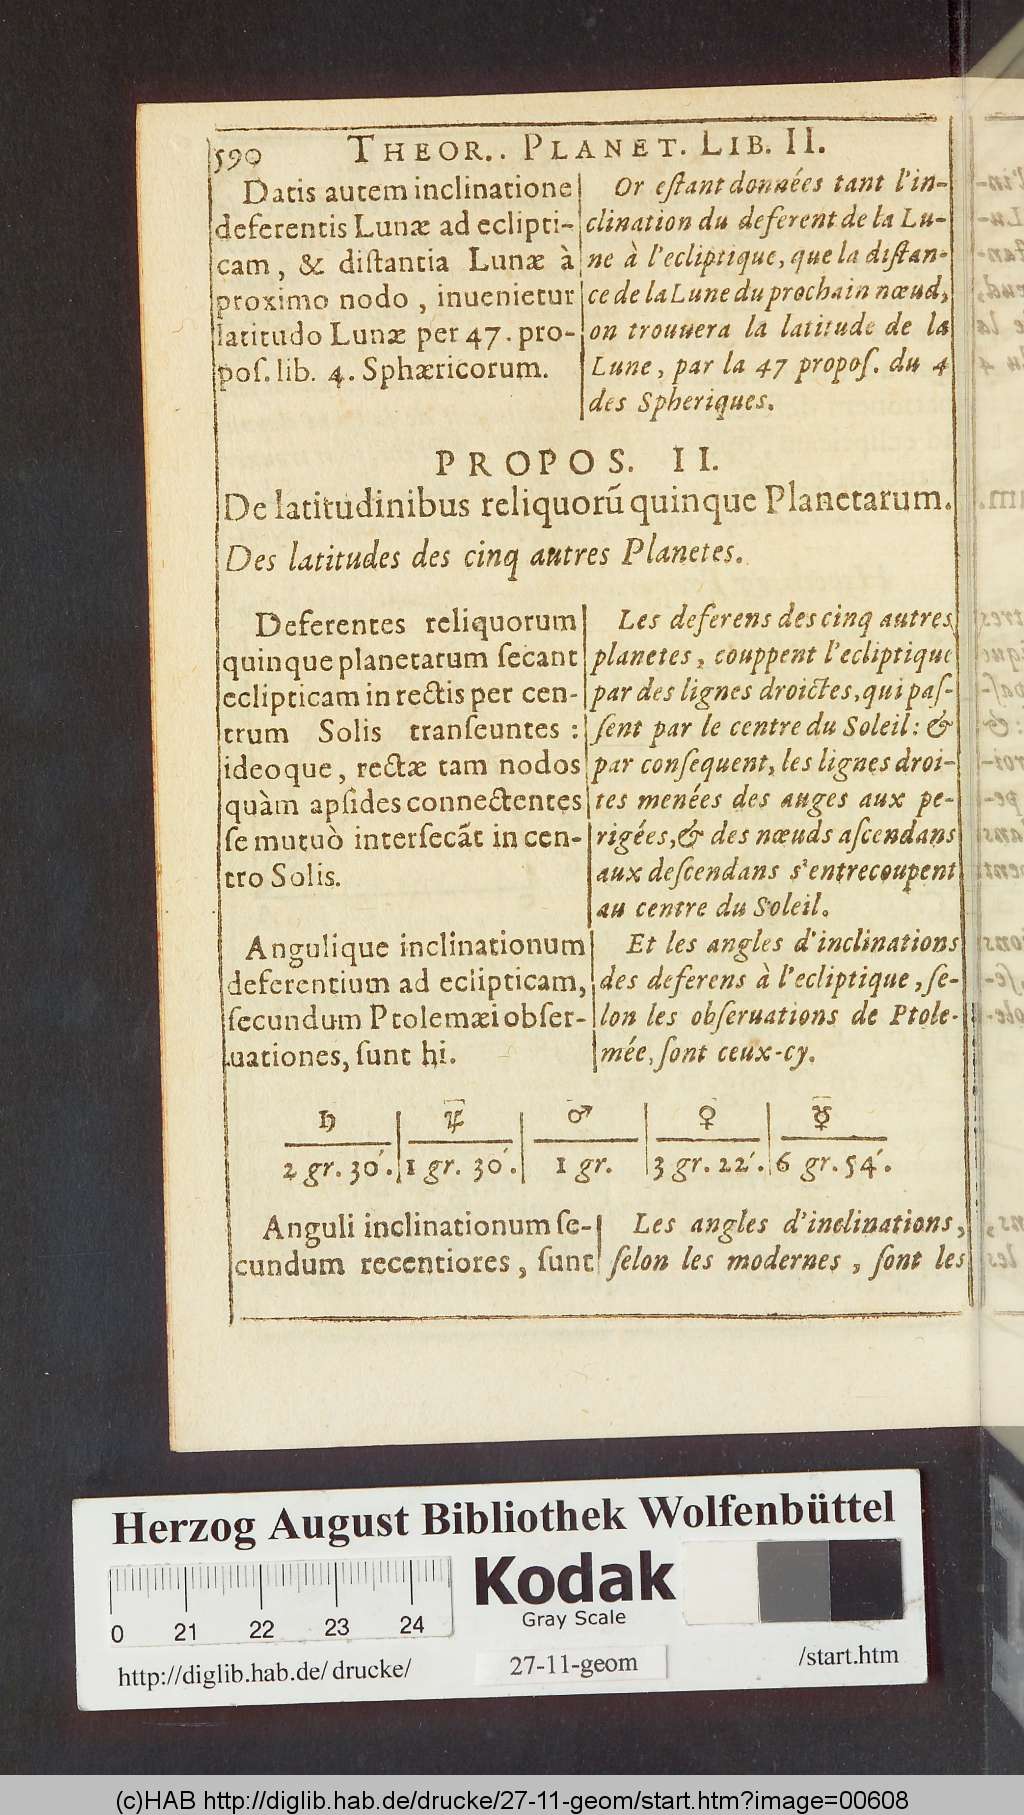 590 THEOR.. PLANET. LIB. II.
Datis autem inclinatione
deferentis Lunæ ad eclipti-
cam, & distantia Lunæ à
proximo nodo, inuenietur
latitudo Lunæ per 47. pro-
pos. lib. 4. Sphæricorum.
Or estant données tant l'in-
clination du deferent de la Lu-
ne à l'ecliptique, que la distan-
ce de la Lune du prochain nœud,
on trouuera la latitude de la
Lune, par la 47 propos. du 4
des Spheriques.
PROPOS. II.
De latitudinibus reliquorũ quinque Planetarum.
Des latitudes des cinq autres Planetes.
Deferentes reliquorum
quinque planetarum secant
eclipticam in rectis per cen-
trum Solis transeuntes :
ideoque, rectæ tam nodos
quàm apsides connectentes
se mutuò intersecãt in cen-
tro Solis.
Les deferens des cinq autres
planetes, couppent l'ecliptique
par des lignes droictes, qui pas-
sent par le centre du Soleil: &
par consequent, les lignes droi-
tes menées des auges aux pe-
rigées, & des nœuds ascendans
aux descendans s'entrecoupent
au centre du Soleil.
Angulique inclinationum
deferentium ad eclipticam,
secundum Ptolemæi obser-
uationes, sunt hi.
Et les angles d'inclinations
des deferens à l'ecliptique, se-
lon les obseruations de Ptole-
mée, sont ceux-cy.
♄ ♃ ♂ ♀ ☿
2 gr. 30'. 1 gr. 30'. 1 gr. 3 gr. 22'. 6 gr. 54'.
Anguli inclinationum se-
cundum recentiores, sunt
Les angles d'inclinations,
selon les modernes, sont les
Herzog August Bibliothek Wolfenbüttel
0 21 22 23 24
Kodak
Gray Scale
http://diglib.hab.de/drucke/
27-11-geom
/start.htm
(c)HAB http://diglib.hab.de/drucke/27-11-geom/start.htm?image=00608